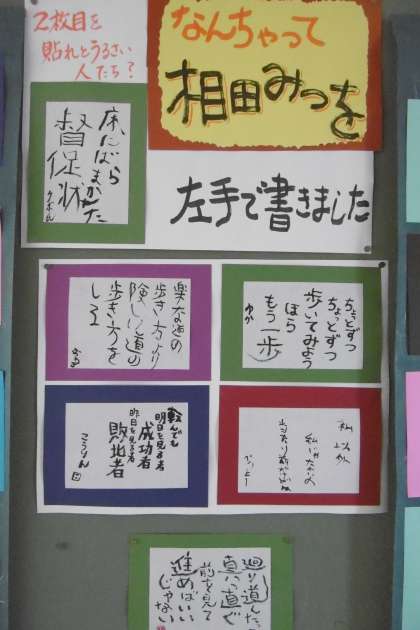 なんちゃって
相田みつを
2枚目を
貼れとうるさい
人たち?
床にばら
まかれた
督促状
左手で書きました
ちょっとずつ
ちょっとずつ
歩いてみよう
ほら
もう一歩
ゆか
楽な道の
歩き方より
険しい道の
歩き方を
しる
転んでも
明日を見る者
成功者
昨日を見る者
敗北者
こうりん
私以外
私じゃないの
当たり前だけどね
廻り道したって
真っ直ぐ
前を見て
進めばいい
じゃない